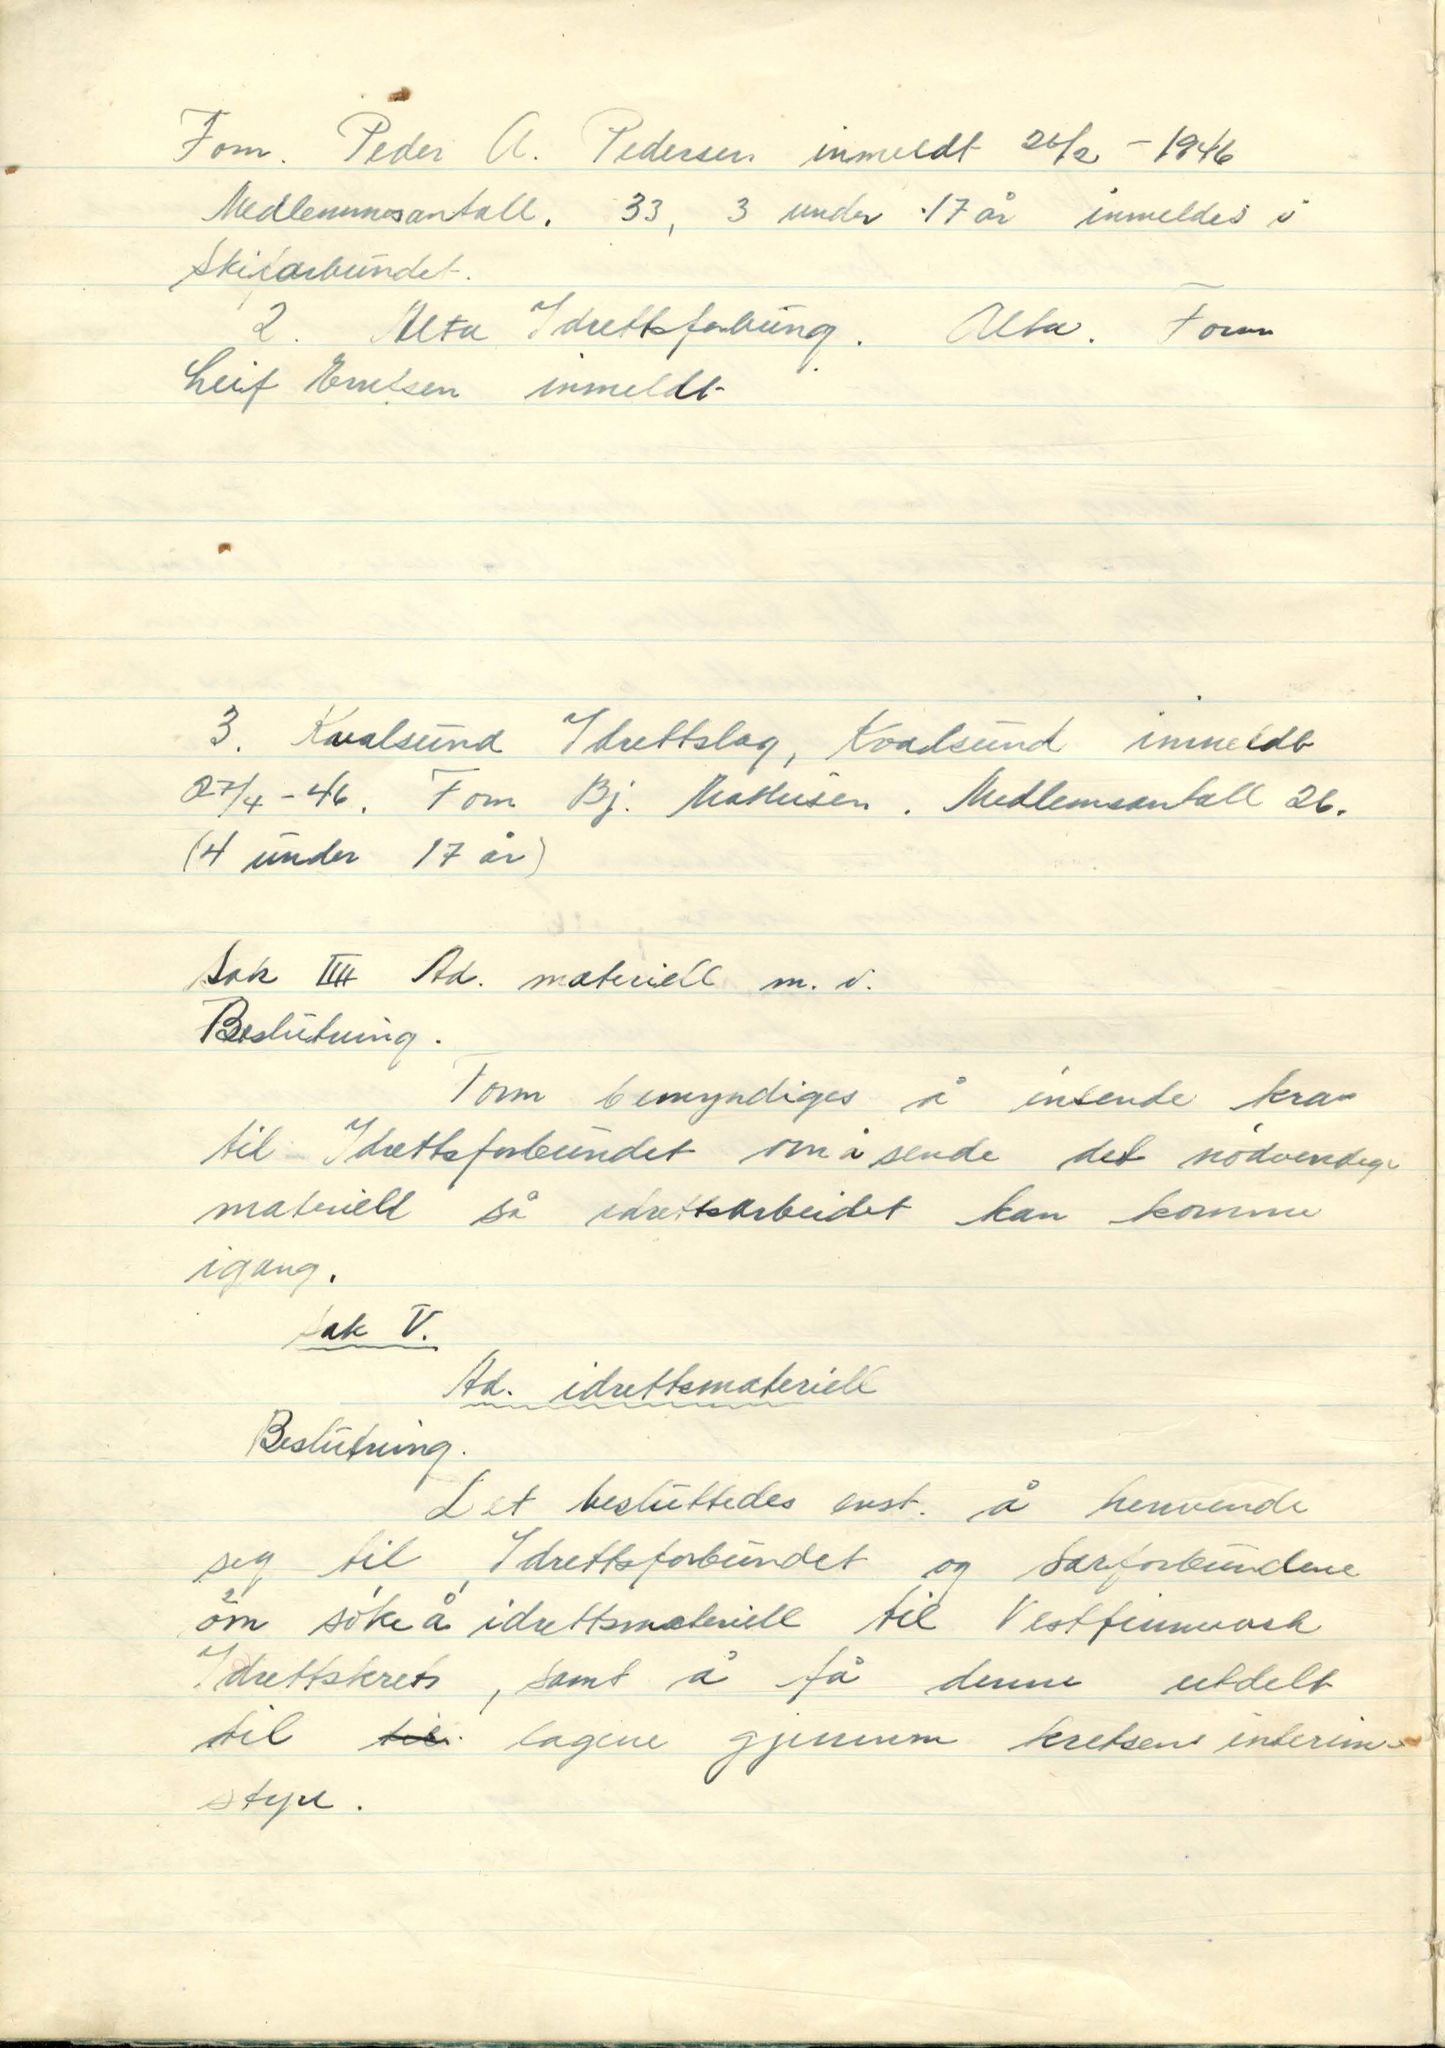 Fom. Peder A. Pedersen inmeldt 26/2 - 1946
Medlemmsantall. 33, 3 under 17 år inmeldes i
Skiforbundet.
2. Alta Idrettsforbung. Alta. Form
Leif inmeldt
3. Kvalsund Idrettslag, Kvalsund inmeldt
27/4 - 46. Fom Bj. Mathisen. Medlemsantall 26.
(4 under 17 år)
Sak IIII Ad. materiell m. v.
Beslutning.
Form bemyndiges å insende krav
til Idrettsforbundet om å sende det nödvendige
materiell så idrettsarbeidet kan komme
igang.
Sak V.
Ad. idrettsmateriell
Beslutning.
Det besluttedes enst. å henvende
seg til Idrettsforbundet og særforbundene
om söke å idrettsmateriell til Vestfinnmark
Idrettskrets, samt å få denne utdelt
til til lagene gjennom kretsens interim-
styre.